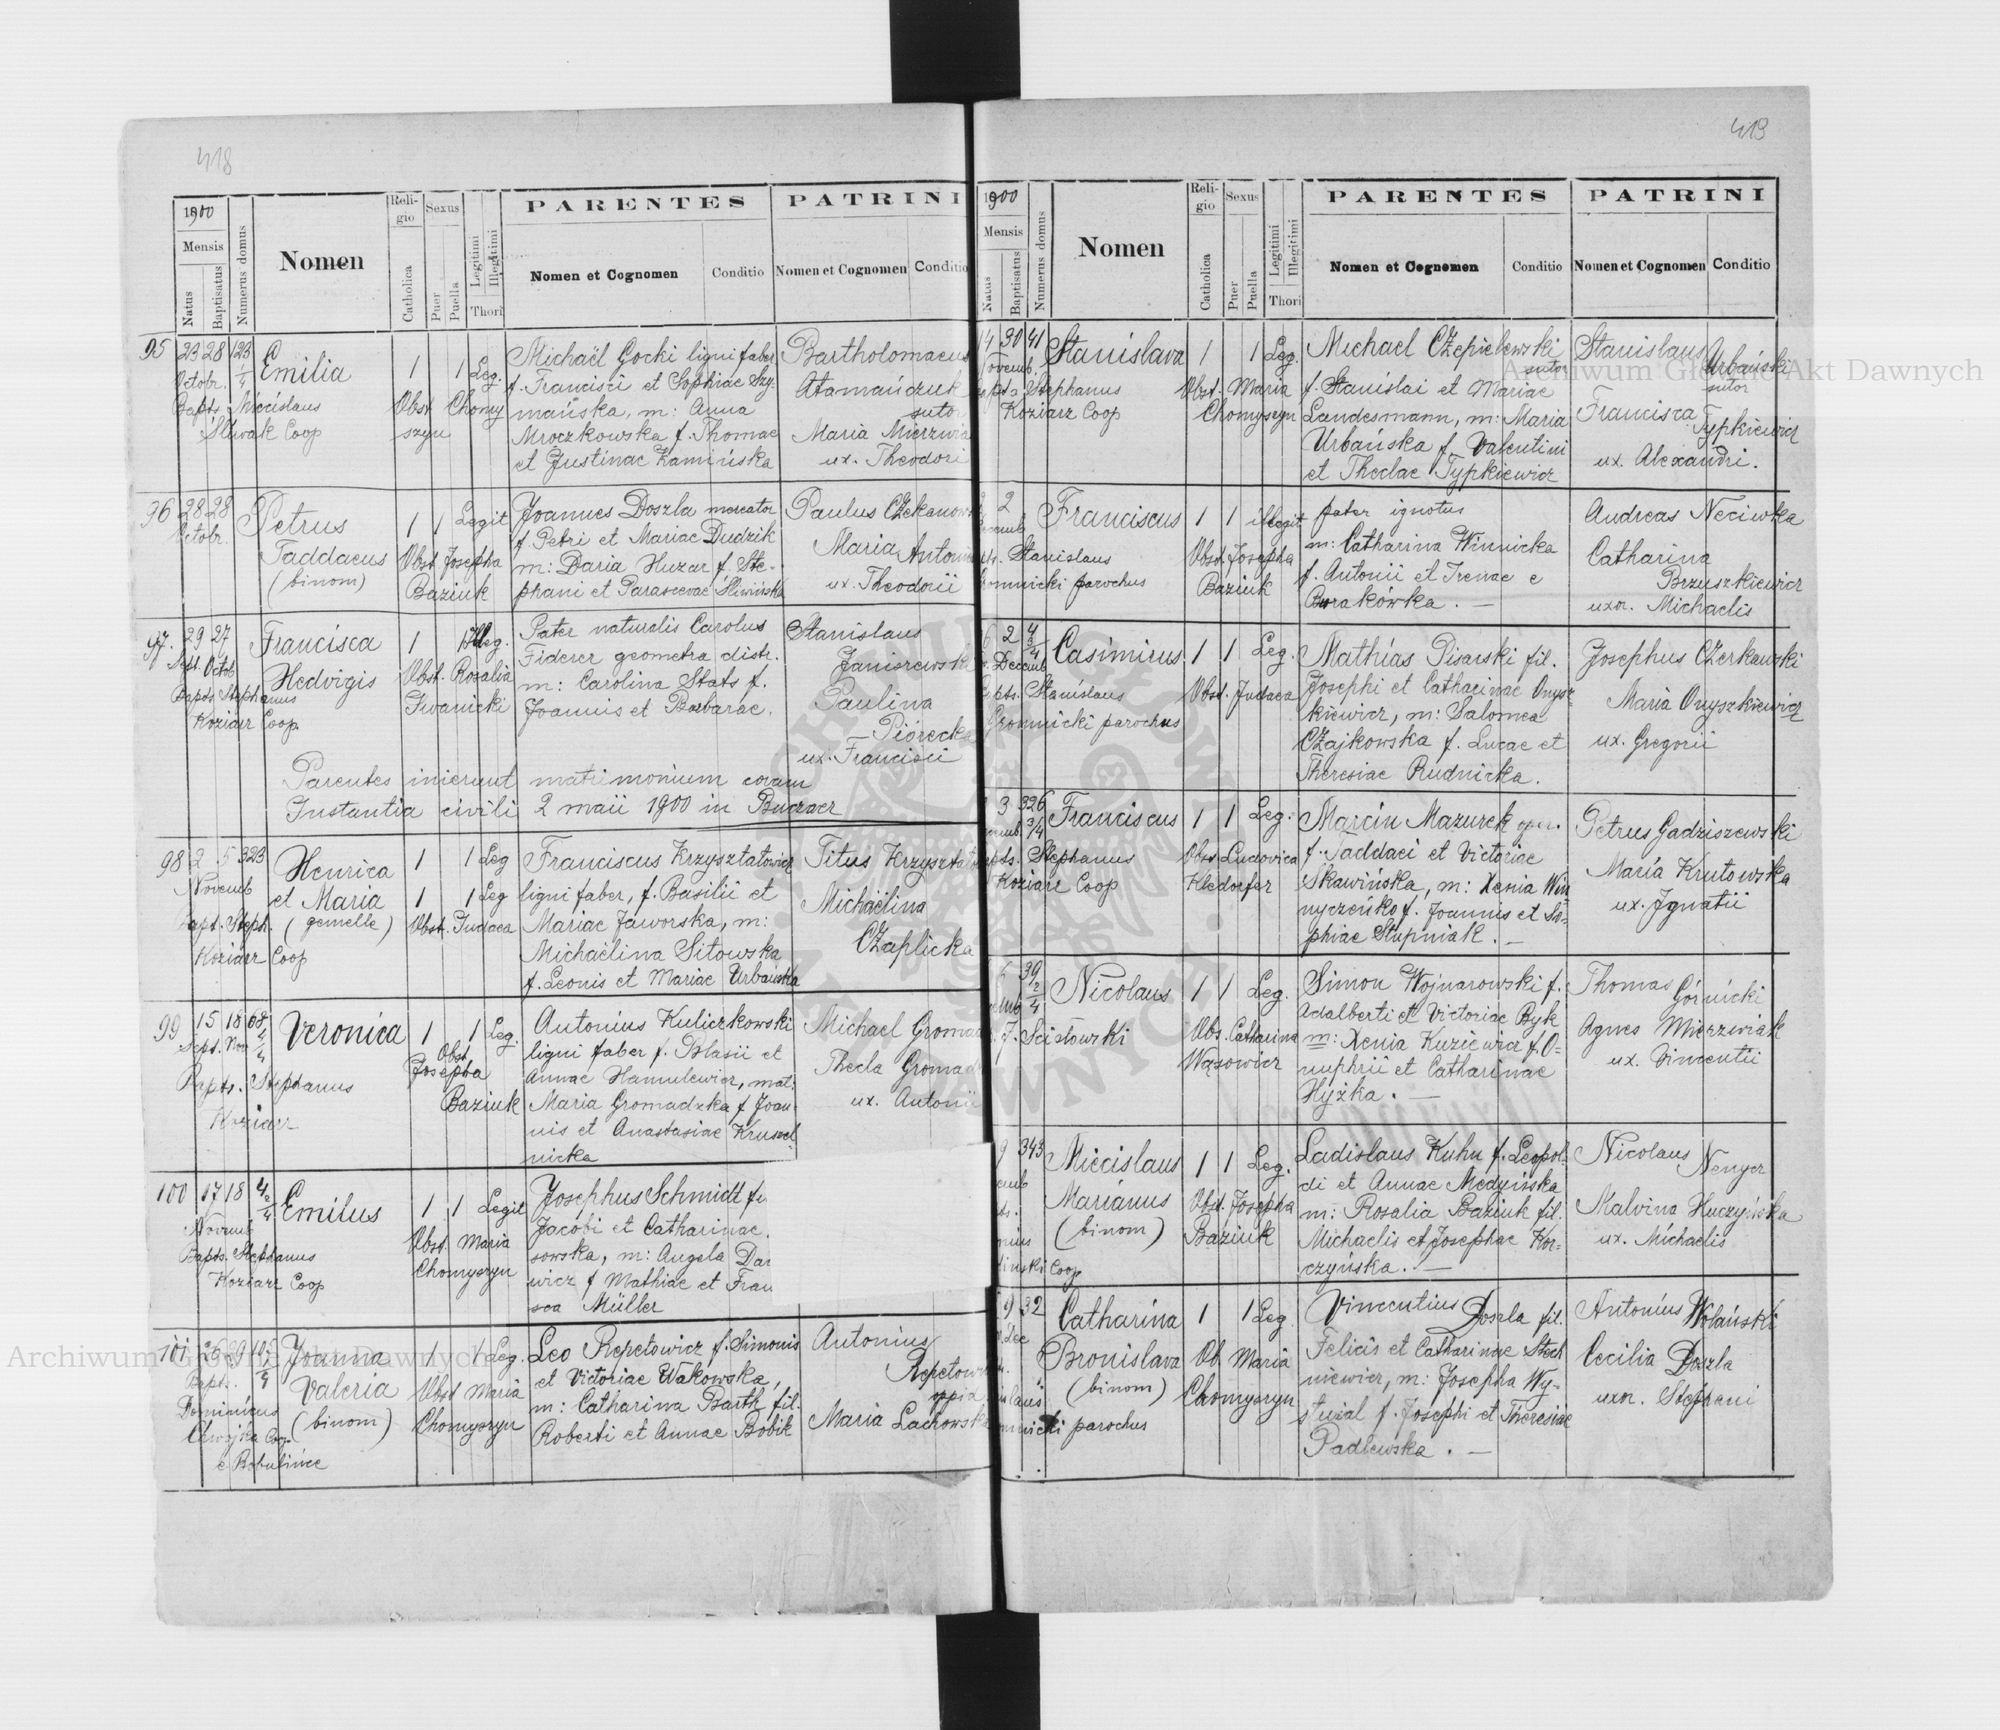 418
1900
Mensis
Natus
Baptisatus
Numerus domus
Nomen
Religio
Catholica
Sexus
Puer
Puella
Legitimi
Illegitimi
Thori
PARENTES
Nomen et Cognomen
Conditio
PATRINI
Nomen et Cognomen
Conditio
95 23 28 123 1/4 Emilia 1 1 Leg.
Octobr.
Bapts. Miecislaus
Slewak Coop
Obst. Chomy
szyn
Michaël Gocki ligni faber
f. Francisci et Sophiae Szy-
mańska, m: Anna
Mroczkowska f. Thomae
et Justinae Kamińska
Bartholomaeus
Atamańczuk
sutor
Maria Mierzwia
ux. Theodori
96 28 28 Petrus 1 1 Legit
Octobr.
Taddaeus
(binom)
Obst. Josepha
Baziuk
Joannes Doszla mercator
f Petri et Mariae Dudzik
m: Daria Huzar f. Ste-
phani et Parascevae Śliwińska
Paulus Czekanows
Maria Antoni
ux. Theodorii
97. 29 27 Francisca 1 1 Illeg.
Sept. Octob
Hedvigis
Bapts Stephanus
Koziarz Coop.
Obst. Rosalia
Iwanicki
Pater naturalis Carolus
Fiderer geometra distr.
m: Carolina Stats f.
Joannis et Barbarae.
Stanislaus
Janiszewsk
Paulina
Piórecka
ux. Francisci
Parentes inierunt matrimonium coram
Instantia civili 2 maii 1900 in Buczacz
98 2 5 323 Henrica 1 1 Leg
Novemb
et Maria 1 1 Leg
Bapt. Steph. (gemelle) Obst. Judaea
Koziarz Coop
Franciscus Krzysztatowicz
ligni faber, f. Basilii et
Mariae Jaworska, m:
Michaëlina Sitowska
f. Leonis et Mariae Urbańska
Titus Krzysztat
Michaëlina
Czaplicka
99 15 18 68 4/4 Veronica 1 1 Leg.
Sept. Nov
Bapts. Stephanus
Koziarz
Obst.
Josepha
Baziuk
Antonius Kuliczkowski
ligni faber f. Blasii et
Annae Hamulewicz, mat.
Maria Gromadzka f. Joan-
nis et Anastasiae Krusel
nicka
Michael Gromad
Thecla Gromad
ux. Antonii
100 17 18 4 2/4 Emilus 1 1 Legit
Novemb
Bapts. Stephanus
Koziarz Coop
Obst. Maria
Chomyszyn
Josephus Schmidt fi
Jacobi et Catharinae
sowska, m: Angela Dar
wicz f Mathiae et Fran
sca Müller
101 26 29 105 Joanna 1 1 Leg.
Bapts.
Valeria
Dominicus
(binom)
Obst Maria
Chomyszyn
Leo Repetowicz f. Simonis
et Victoriae Wakowska,
m: Catharina Barth fil.
Roberti et Annae Bobik
Antonius
Repetow
Maria Lachowska
413
1900
Mensis
Natus
Baptisatus
Numerus domus
Nomen
Religio
Catholica
Sexus
Puer
Puella
Legitimi
Illegitimi
Thori
PARENTES
Nomen et Cognomen
Conditio
PATRINI
Nomen et Cognomen
Conditio
14 30 41 Stanislava 1 1 Leg.
Novemb.
Bapts Stephanus
Koziarz Coop
Obst. Maria
Chomyszyn
Michael Czepielewski
sutor
f. Stanislai et Mariae
Landesmann, m: Maria
Urbańska f. Valentini
et Theclae Typkiewicz
Stanislaus Urbański
sutor
Francisca Typkiewicz
ux. Alexandri.
2 Franciscus 1 1 illegit.
Stanislaus
Gromnicki parochus
Obst. Josepha
Baziuk
pater ignotus
m: Catharina Winnicka
f. Antonii et Irenae e
Burakówka. —
Andreas Neciwka
Catharina
Brzuszkiewicz
uxor. Michaelis
6 2 4 2/4 Casimirus 1 1 Leg.
Decemb
Bapts. Stanislaus
Gromnicki parochus
Obst. Judaea
Mathias Pisarski fil.
Josephi et Catharinae Onysz-
kiewicz, m: Salomea
Czajkowska f. Lucae et
Theresiae Rudnicka.
Josephus Czerkawski
Maria Onyszkiewicz
ux. Gregorii
3 326 3/4 Franciscus 1 1 Leg.
Bapts. Stephanus
Koziarz Coop
Obst Ludovica
Kledorfer
Marcin Mazurek oper.
f. Taddaei et Victoriae
Skawińska, m: Xenia Win
nyczeńko f. Joannis et So-
phiae Stupniak. —
Petrus Gadziszewski
Maria Krutowska
ux. Ignatii
6 39 2/4 Nicolaus 1 1 Leg.
J. Scisłowski
Obs. Catharina
Wąsowicz
Simon Wojnarowski f.
Adalberti et Victoriae Byk
m: Xenia Kuziewicz f. O-
nuphrii et Catharinae
Hyżka. —
Thomas Górnicki
Agnes Mierzwiak
ux. Vincentii
9 343 Miecislaus 1 1 Leg.
Marianus
(binom)
Coop
Obst. Josepha
Baziuk
Ladislaus Kuhn f. Leopol-
di et Annae Medyńska
m: Rosalia Baziuk fil.
Michaelis et Josephae Kor-
czyńska. —
Nicolaus Nenycz
Malvina Huczyńska
ux. Michaelis
9 32 Catharina 1 1 Leg.
Dec
Bronislava
(binom)
parochus
Ob. Maria
Chomyszyn
Vincentius Doszla fil.
Felicis et Catharinae Stech
niewicz, m: Josepha Wy-
stuzal f. Josephi et Theresiae
Padlewska. —
Antonius Wolański
Cecilia Doszla
uxor. Stephani
Archiwum Główne Akt Dawnych
Archiwum Główne Akt Dawnych